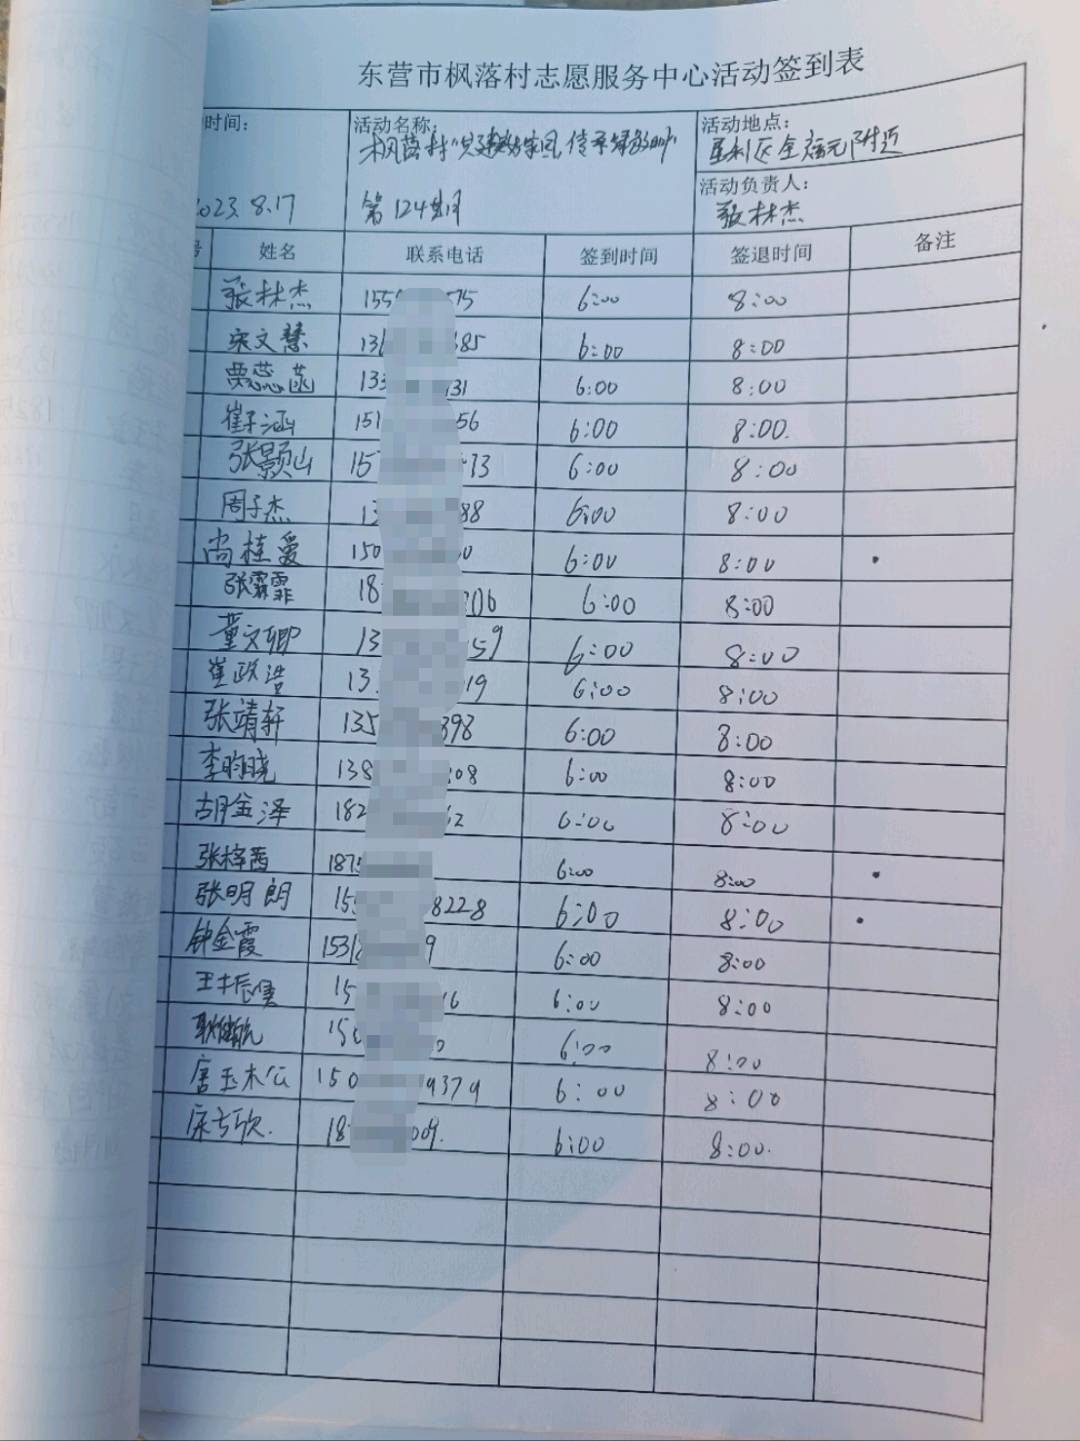 东营市枫落村志愿服务中心活动签到表
时间: 活动名称: 活动地点:
枫落村
2023.8.17 第124期 活动负责人:
张林杰
号 姓名 联系电话 签到时间 签退时间 备注
张林杰 155 575 6:00 8:00
宋文慧 136 385 6:00 8:00
栗蕊菡 133 131 6:00 8:00
崔子涵 151 56 6:00 8:00.
张颢山 157 73 6:00 8:00
周子杰 13 88 6:00 8:00
尚桂爱 150 0 6:00 8:00
张霖霏 18 706 6:00 8:00
董文卿 13 59 6:00 8:00
崔政浩 13 19 6:00 8:00
张靖轩 135 398 6:00 8:00
李昀晓 138 08 6:00 8:00
胡金泽 182 62 6:00 8:00
张梓茜 1875 6:00 8:00
张明朗 15 8228 6:00 8:00
钟金霞 1531 9 6:00 8:00
15 16 6:00 8:00
150 0 6:00 8:00
唐玉木公 150 9379 6:00 8:00
18 009. 6:00 8:00.